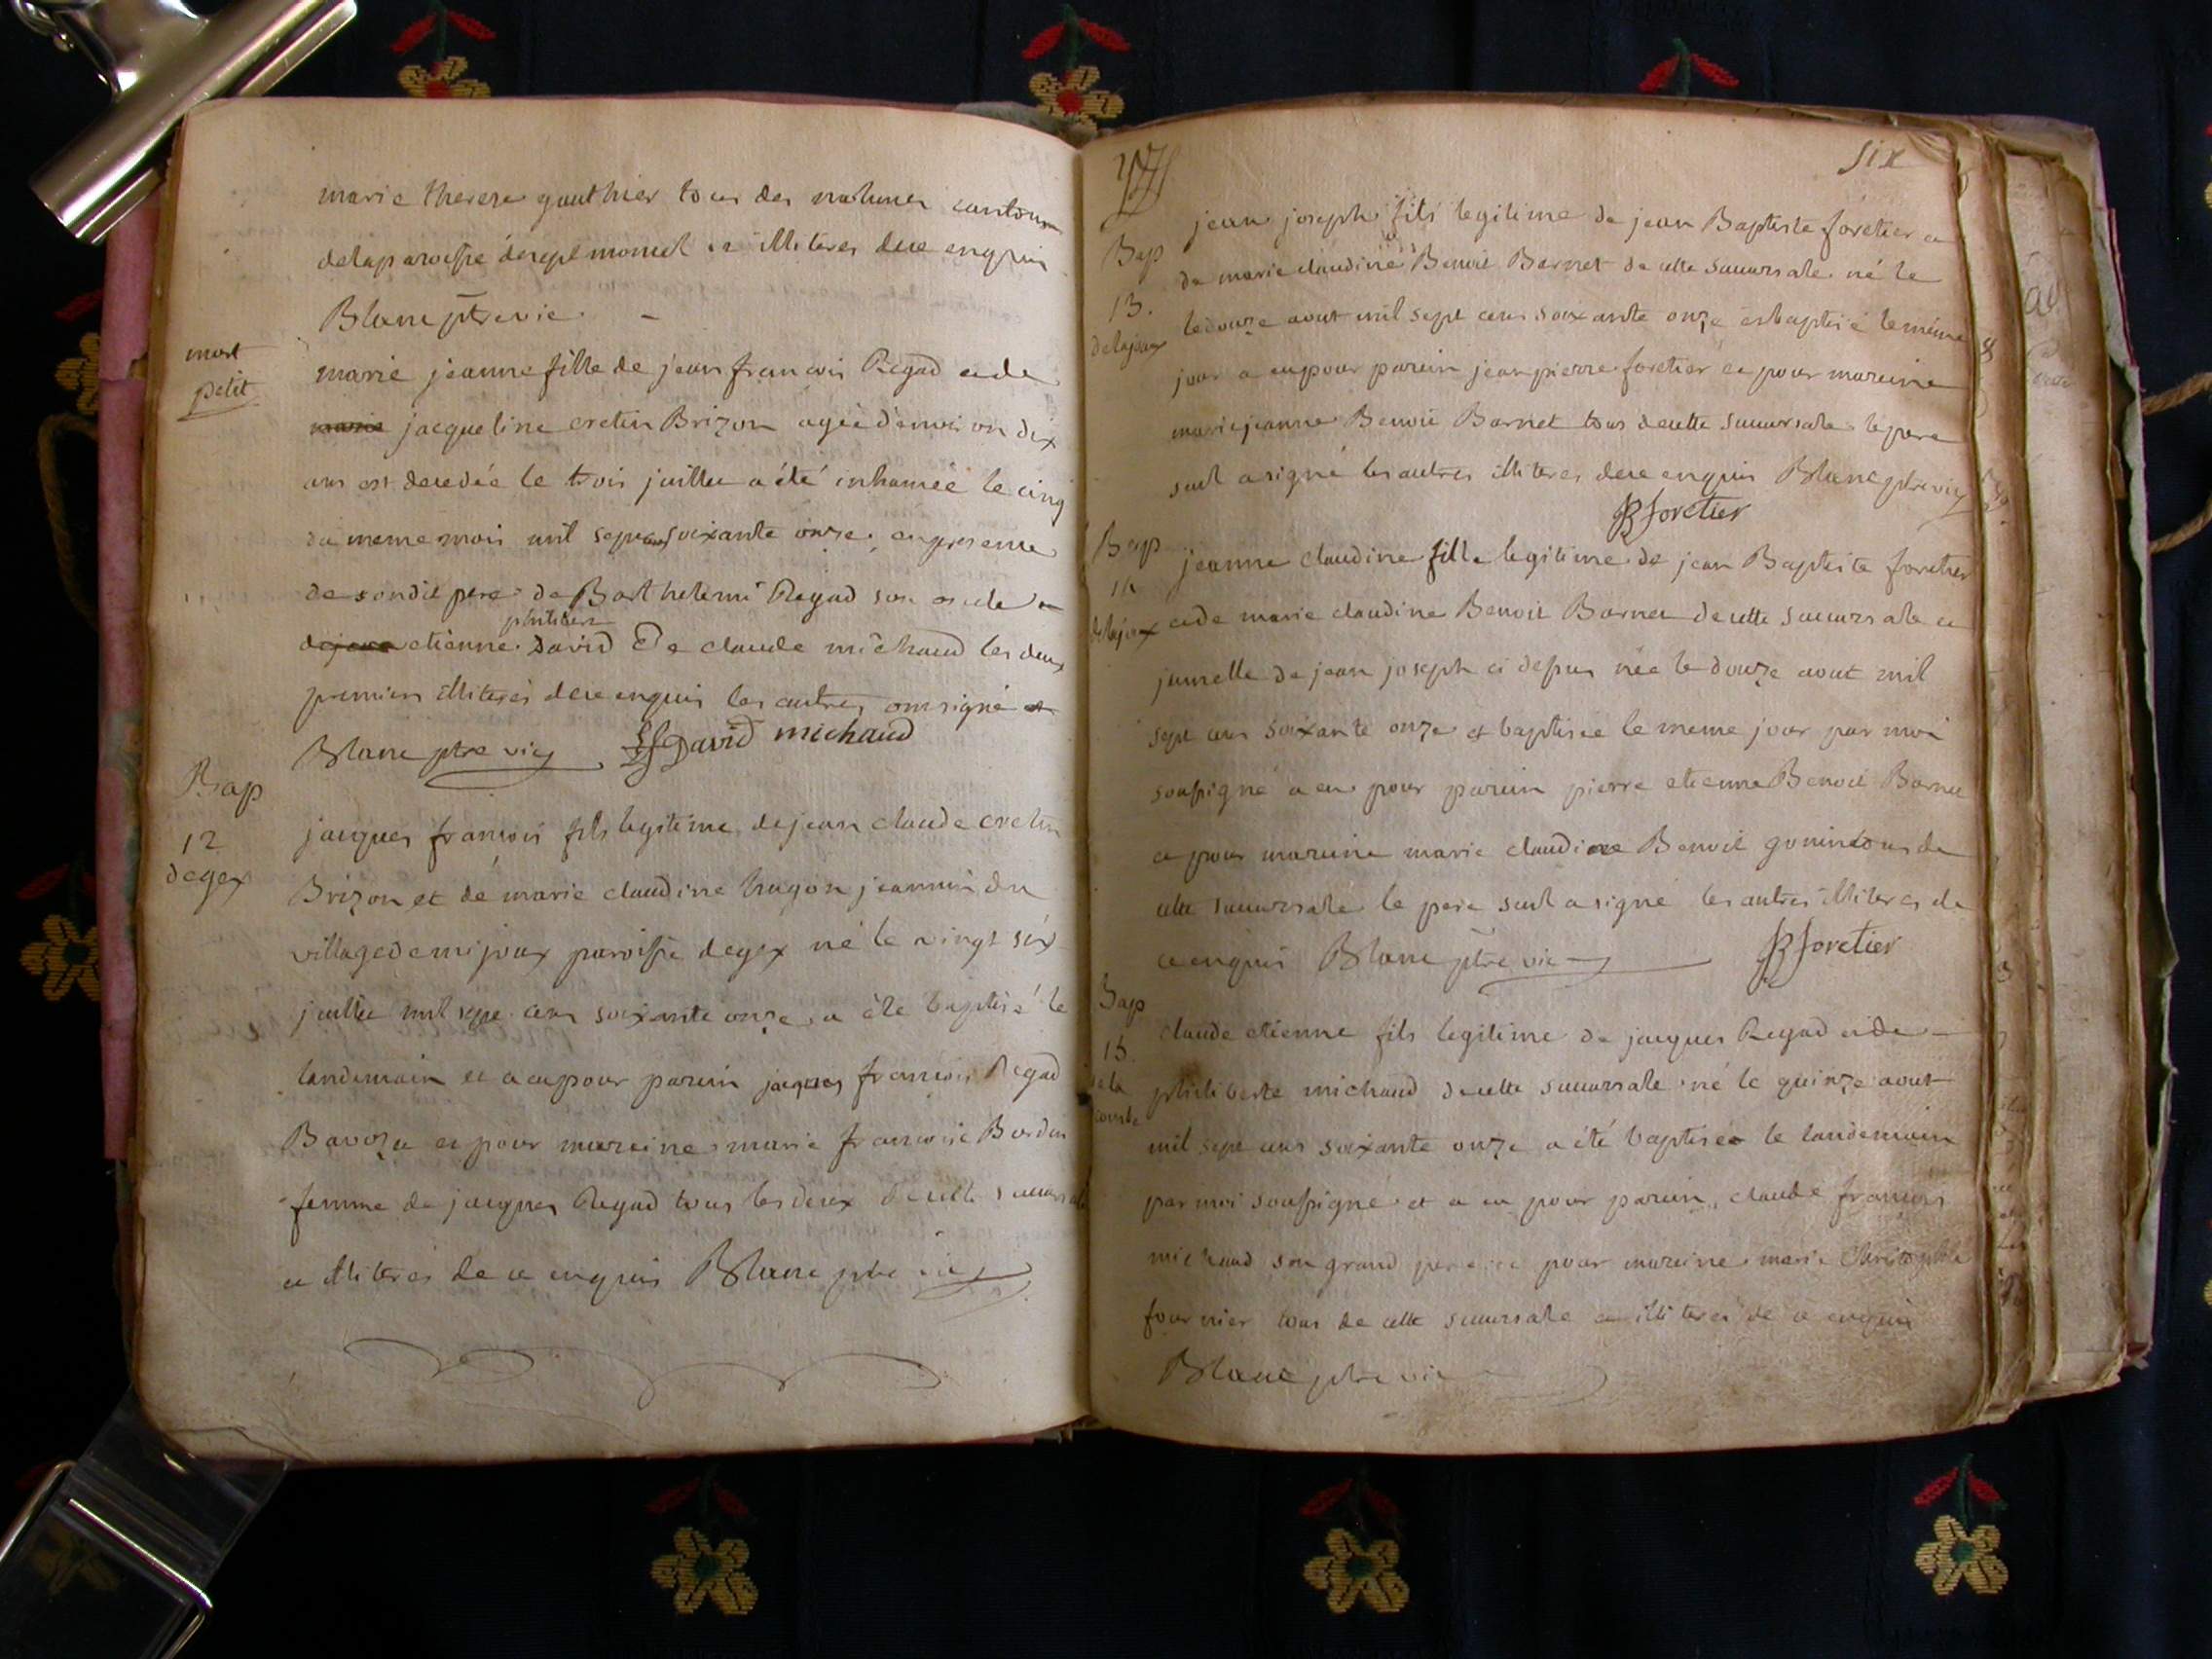 marie therese gauthier tous des mesmes cantons
delaparoisse de septmoncel et illiteres de ce enquis
Blanc ptre vic
mort
petit
marie jeanne fille de jean francois Regad et de
marie jacqueline cretin Brizon agée d'environ dix
ans est decedée le trois juillet a été inhumée le cinq
du meme mois mil sept cens soixante onze en presence
de son dit pere de Barthelemi Regad son oncle
philibert
de jean etienne David De claude michaud les deux
premiers illiterés de ce enquis les autres ont signé
Blanc ptre vic David michaud
Bap
12
de gex
jacques francois fils legitime de jean claude cretin
Brizon et de marie claudine hugon jeannin du
village de mijoux paroisse de gex né le vingt six
juillet mil sept cens soixante onze a été baptisé le
landemain et a eu pour parein jacques francois Regad
Bavoza et pour mareine marie francoise Burdin
femme de jacques Regad tous les deux de cette succursale
et illiterés de ce enquis Blanc ptre vic
six
Bap
13.
delajoux
jean joseph fils legitime de jean Baptiste foretier et
de marie claudine Benoit Barnet de cette succursale né le
le douze aout mil sept cens soixante onze est baptisé le même
jour a eu pour parein jean pierre foretier et pour mareine
marie jeanne Benoit Barnet tous de cette succursale le pere
seul a signé les autres illiteres de ce enquis Blanc ptre vic
JB foretier
Bap
14
delajoux
jeanne claudine fille legitime de jean Baptiste foretier
et de marie claudine Benoit Barnet de cette succursale et
jumelle de jean joseph ci desus née le douze aout mil
sept cens soixante onze et baptisée le meme jour par moi
soussigné a eu pour parein pierre etienne Benoit Barnet
et pour mareine marie claudine Benoit gonin tous de
cette succursale le pere seul a signé les autres illiteres de
ce enquis Blanc ptre vic JB foretier
Bap
15.
de la
combe
claude etienne fils legitime de jacques Regad et de
philiberte michaud de cette succursale né le quinze aout
mil sept cens soixante onze a été baptisé le landemain
par moi soussigné et a eu pour parein claude francois
michaud son grand pere et pour mareine marie Christophle
fournier tous de cette succursale et illiterés de ce enquis
Blanc ptre vic